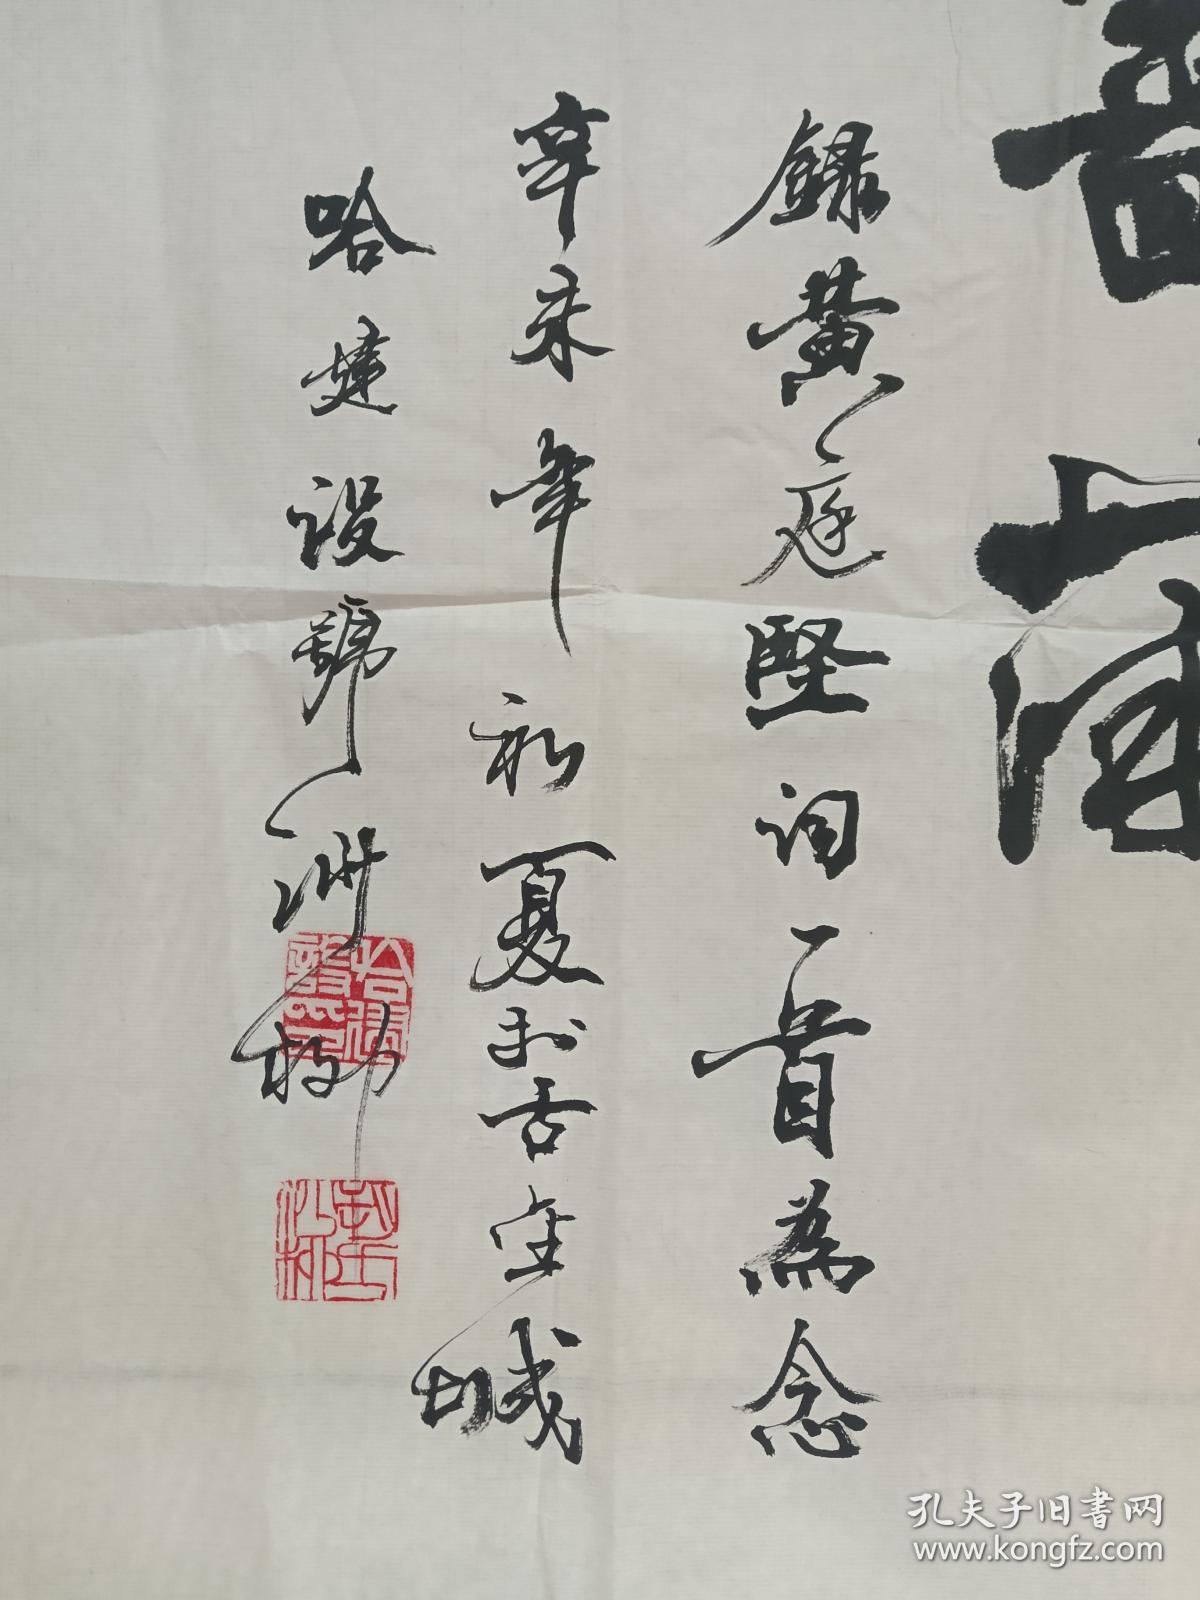 錄黃庭堅詞一首為念
辛未年初夏於古金城
哈建設號沙柳
孔夫子旧书网
www.kongfz.com